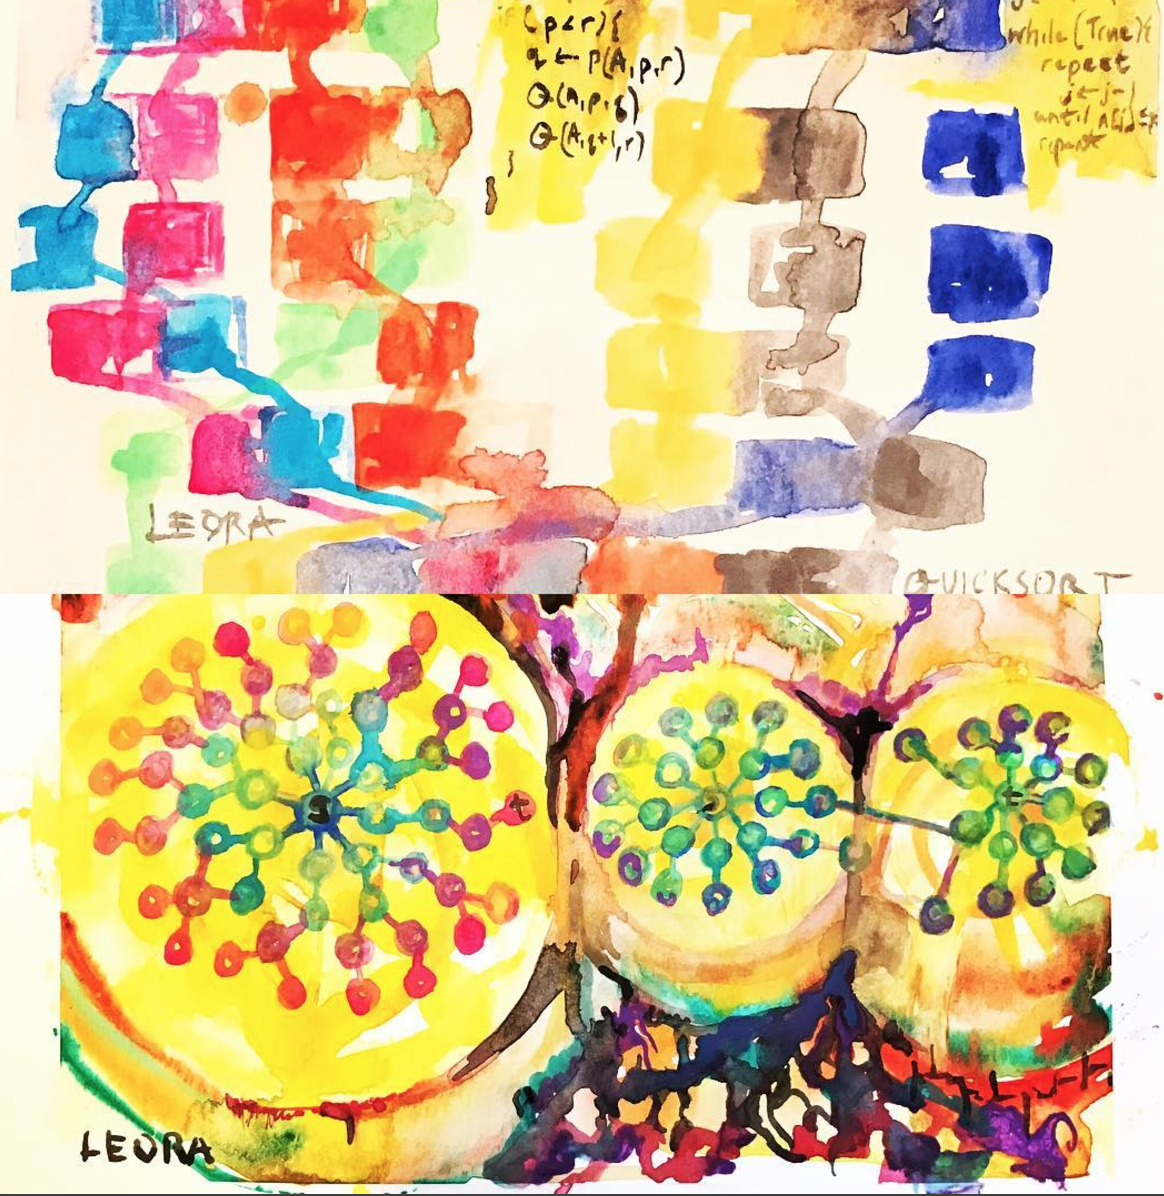 if (p<r){
q ← P(A,p,r)
Q(A,p,q)
Q(A,q+1,r)
}
}
while (True){
repeat
j←j-1
until
repeat
LEORA
QUICKSORT
s
t
t
LEORA